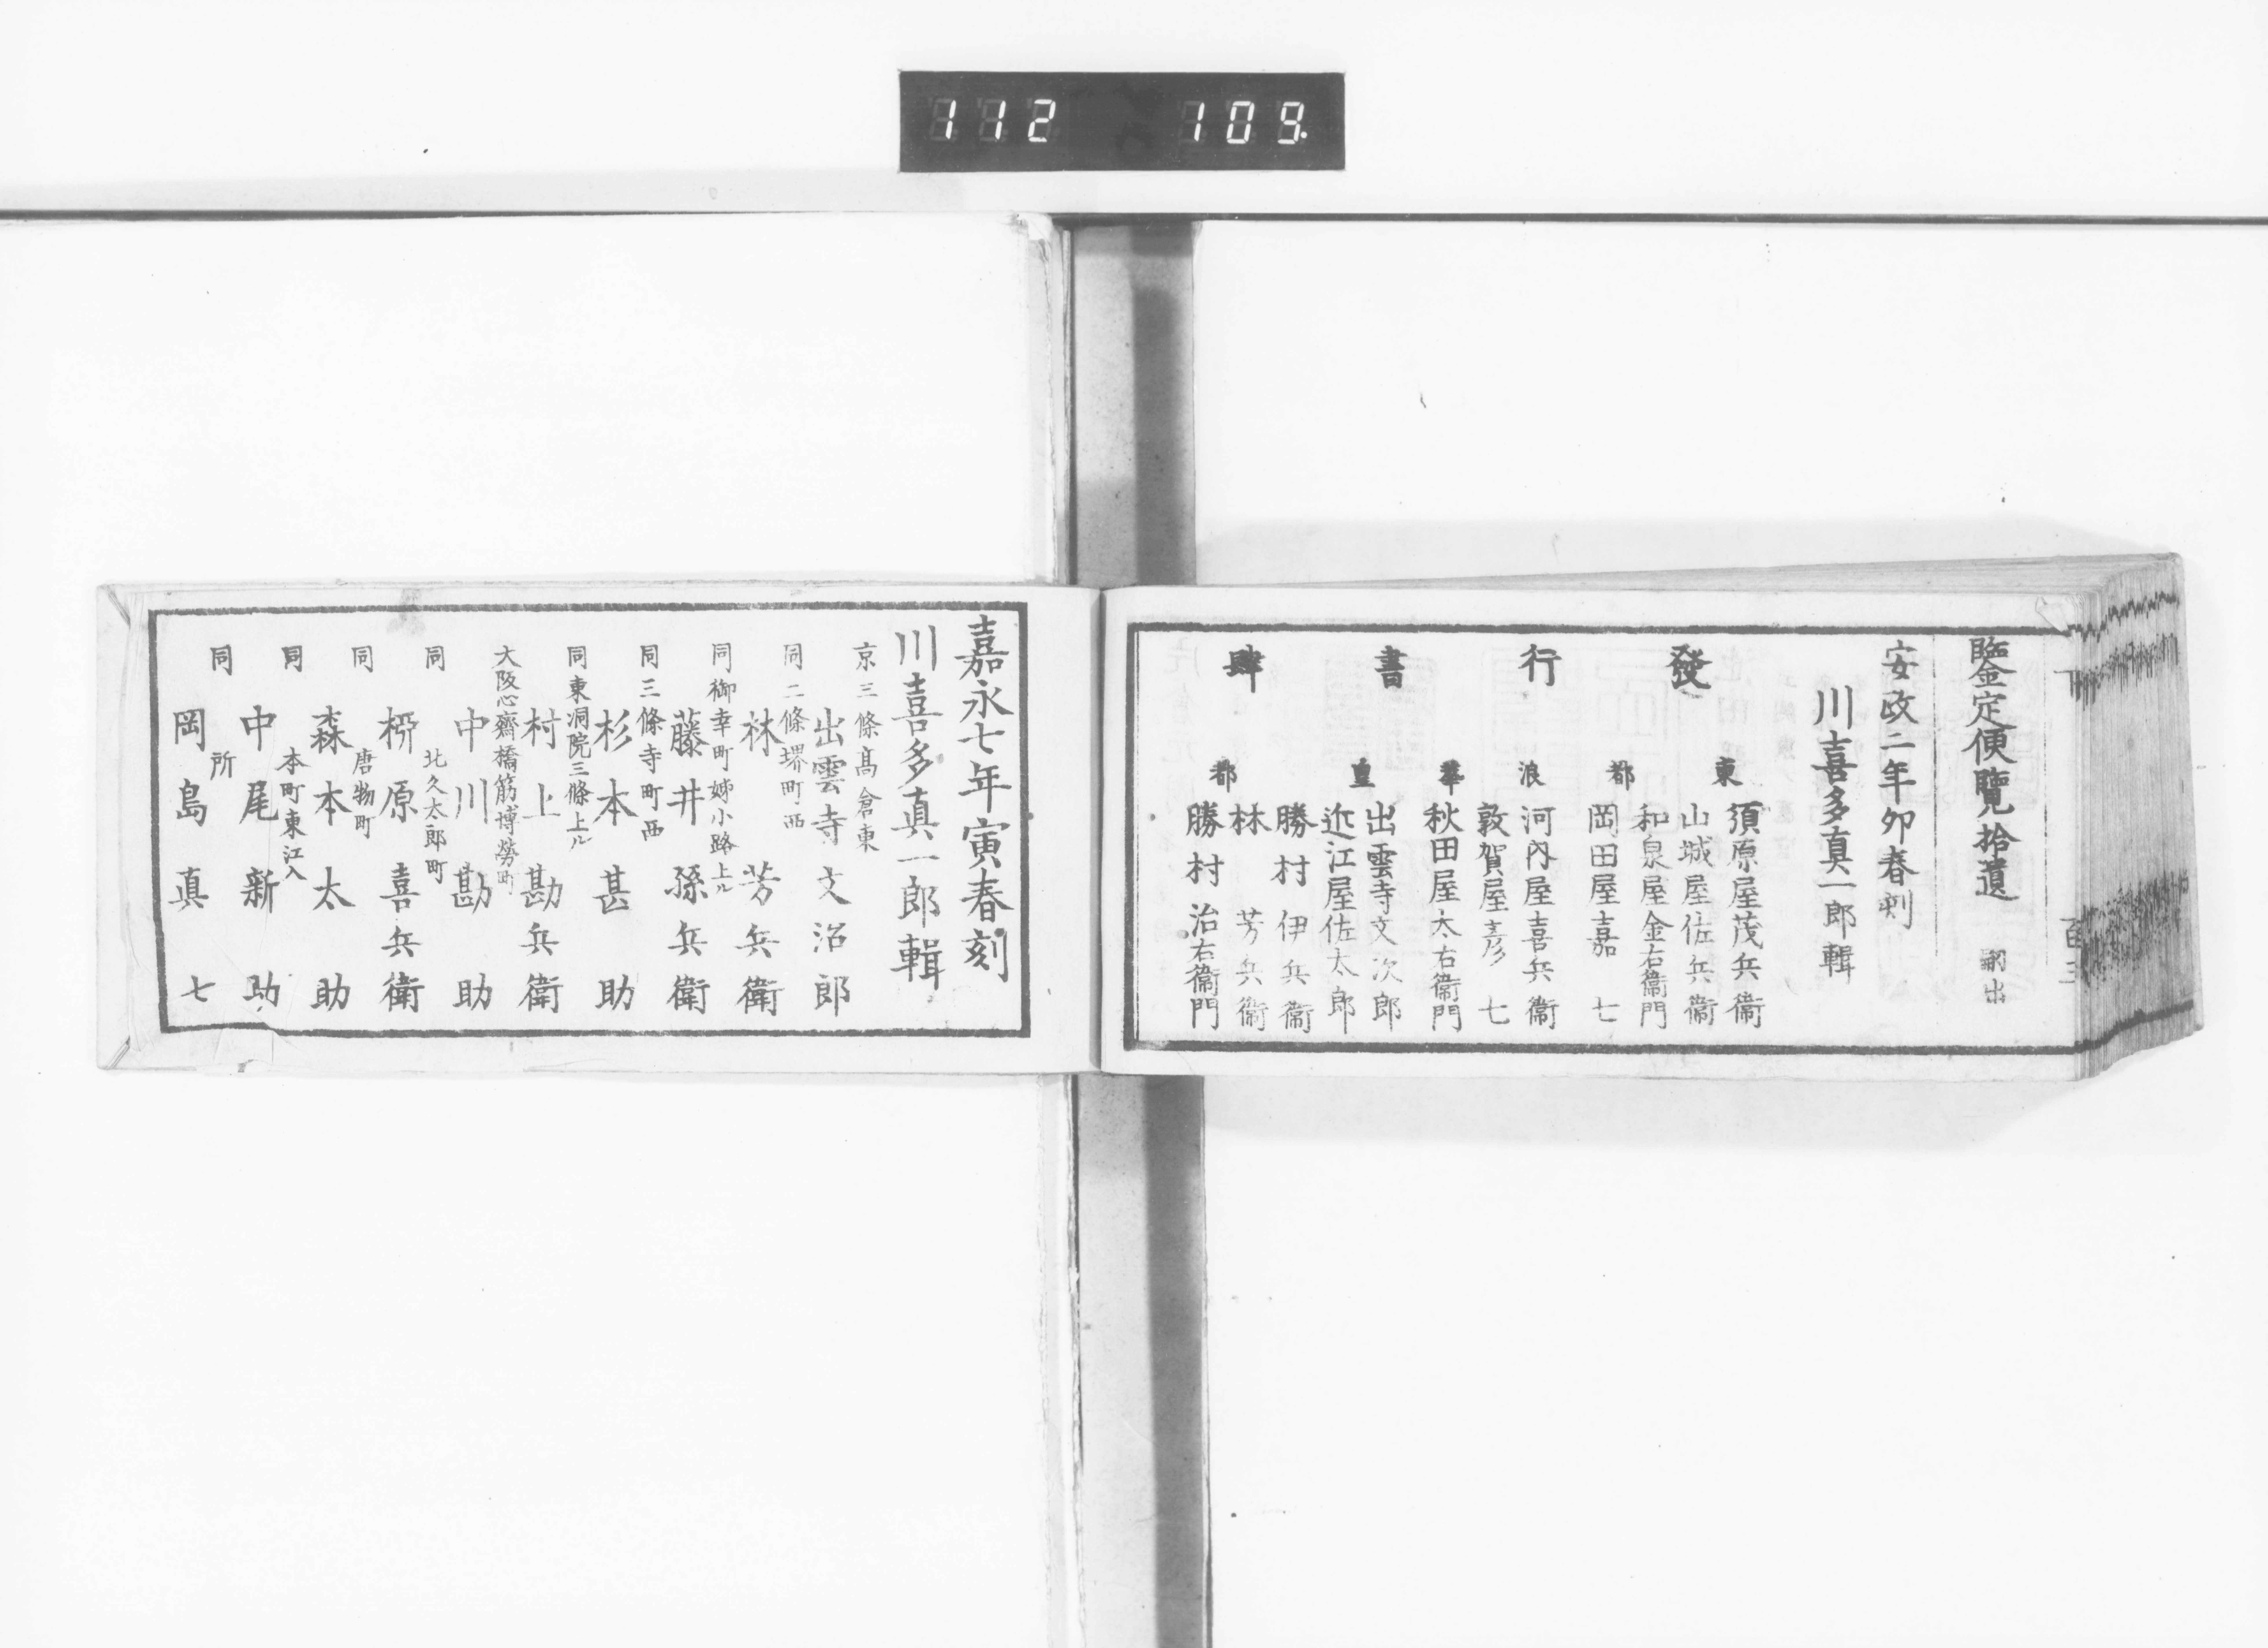 112 109.
鑒定便覽拾遺 嗣出
安政二年卯春刻
川喜多真一郎輯
發行書肆
東都
須原屋茂兵衞
山城屋佐兵衞
和泉屋金右衞門
岡田屋嘉七
浪華
河内屋喜兵衞
敦賀屋彦七
秋田屋太右衞門
皇都
出雲寺文次郎
近江屋佐太郎
勝村伊兵衞
林芳兵衞
勝村治右衞門
嘉永七年寅春刻
川喜多真一郎輯
京三條髙倉東
出雲寺文治郎
同二條堺町西
林芳兵衛
同御幸町姉小路上ル
藤井孫兵衛
同三條寺町西
杉本甚助
同東洞院三條上ル
村上勘兵衛
大阪心齋橋筋博勞町
中川勘助
同北久太郎町
栁原喜兵衛
同唐物町
森本太助
同本町東江入
中尾新助
同所
岡島真七